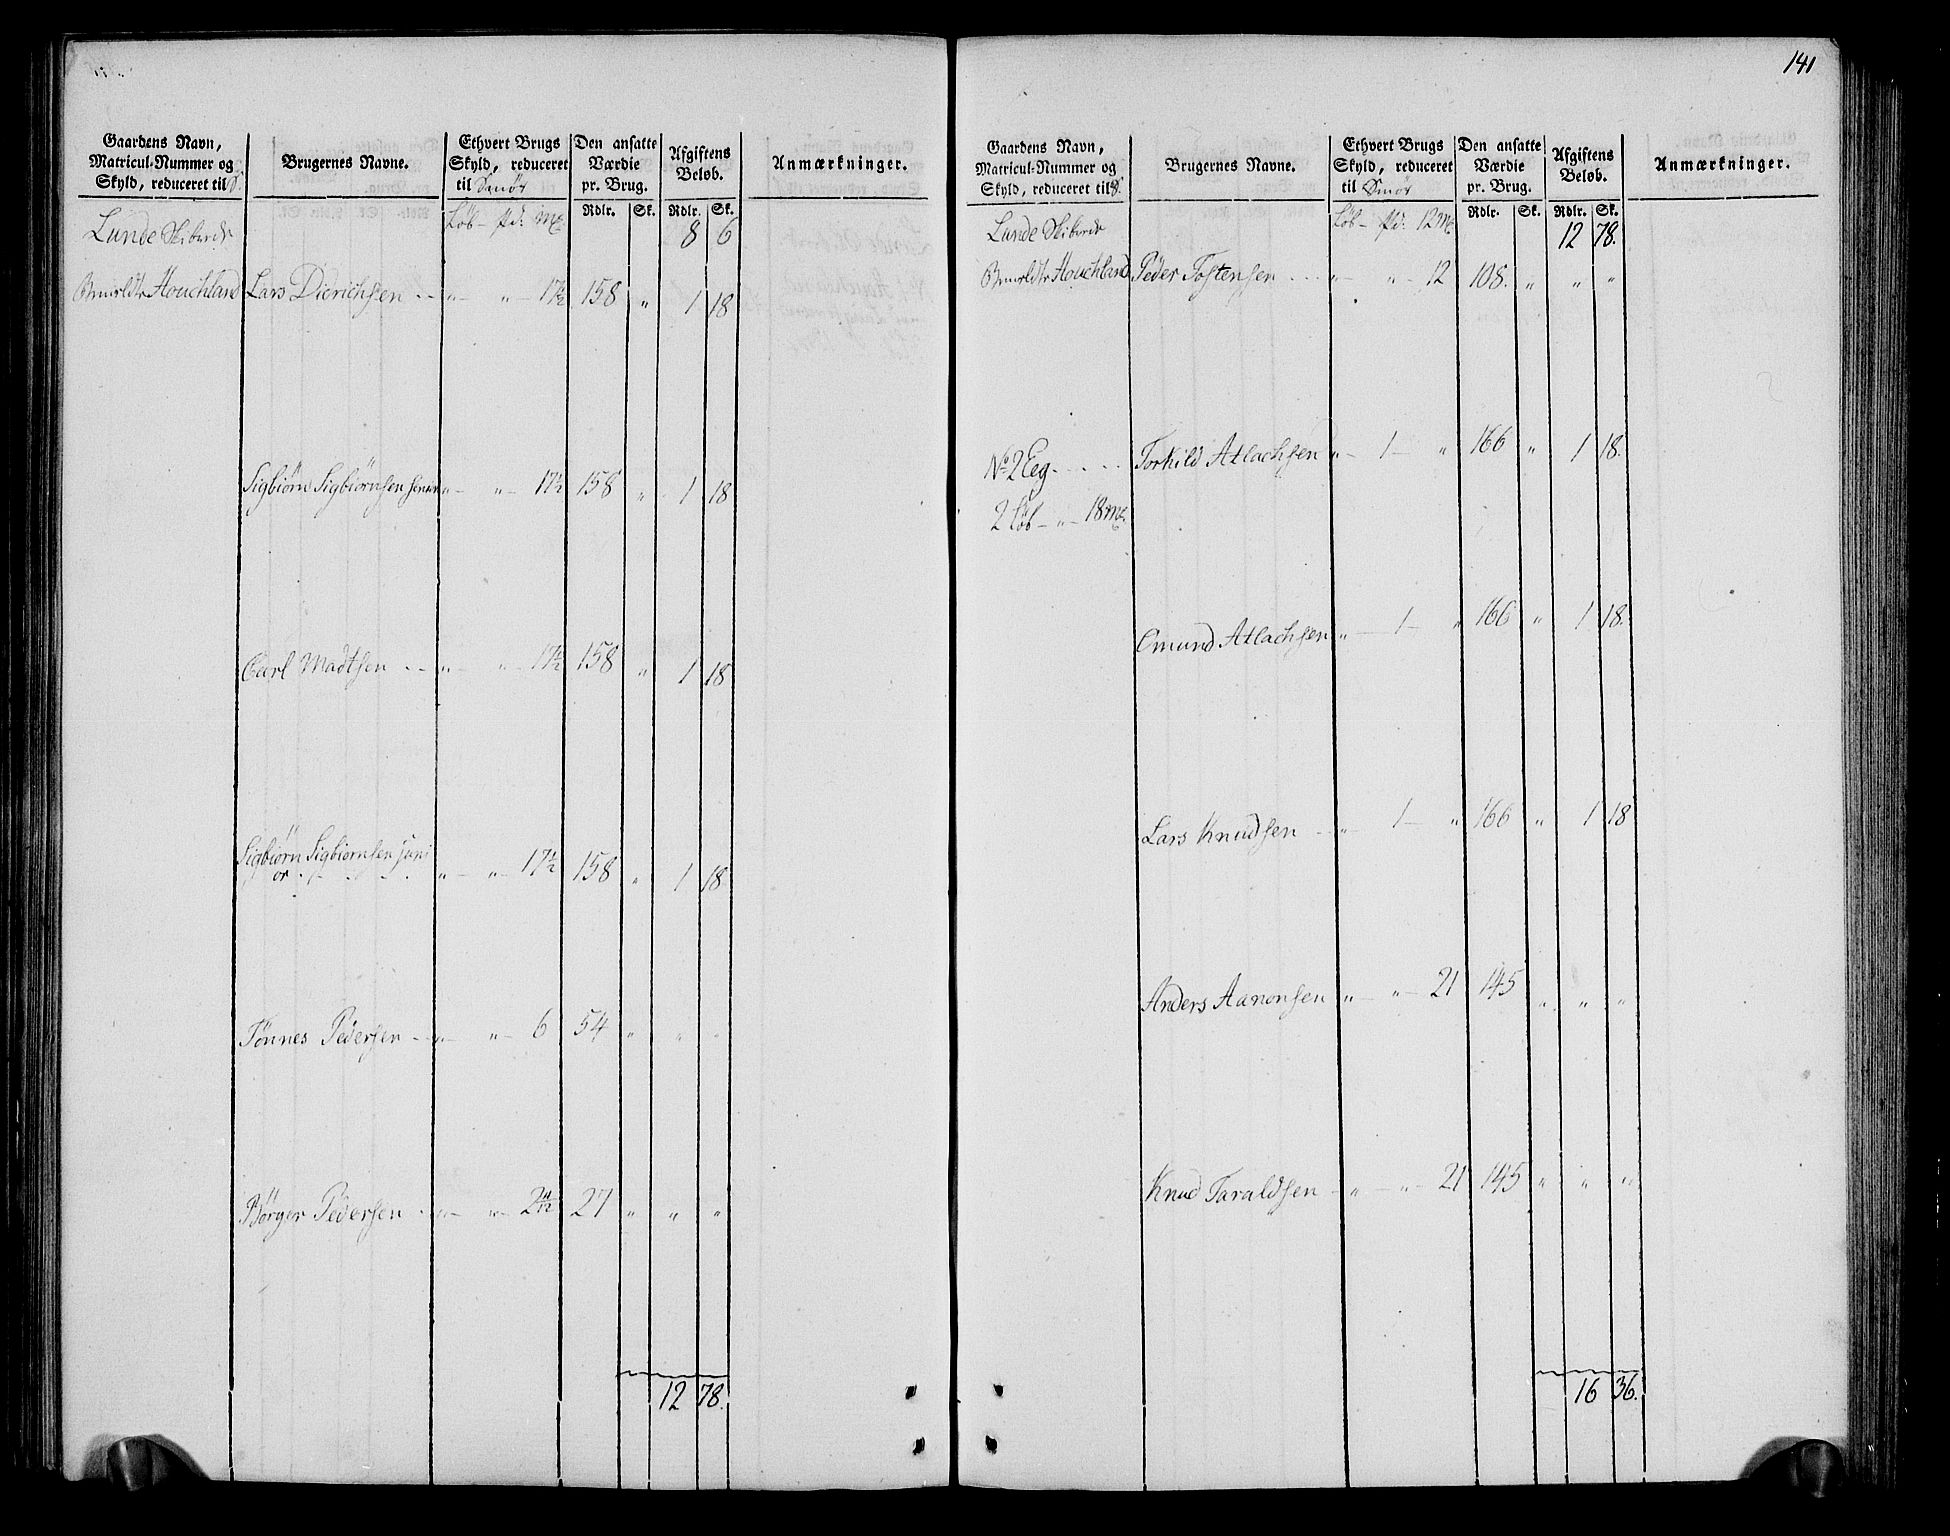 Gaardens Navn,
Matricul-Nummer og
Skyld, reduceret til S.
Brugernes Navne.
Ethvert Brugs
Skyld, reduceret
til Smör
Den ansatte
Værdie
pr. Brug.
Afgiftens
Beløb.
Anmærkninger.
Rdlr. Sk. Rdlr. Sk.
Lunde Skibrede Löb - pd: mk 8 6
Houchland Lars Dierichsen - - " - " - 17½ 158 " 1 18
Sigbiörn Sigbiörnsen senior " - " - 17½ 158 " 1 18
Carl Madtsen - - " - " - 17½ 158 " 1 18
Sigbiörn Sigbiörnsen juni
or - - - - " - " - 17½ 158 " 1 18.
Tönnes Pedersen - " - " - 6 54 " " "
Börger Pedersen - " - " - 2 27 " " "
12 78.
141
Gaardens Navn,
Matricul-Nummer og
Skyld, reduceret til S.
Brugernes Navne.
Ethvert Brugs
Skyld, reduceret
til Smör
Den ansatte
Værdie
pr. Brug.
Afgiftens
Beløb.
Anmærkninger.
Rdlr. Sk. Rdlr. Sk.
Lunde Skibrede Löb - pd: 12 mk 12 78.
Houchland Peder Tostensen - - - " - " - 12 108. " " "
No 2 Eeg - - - - Torkild Atlachsen " - 1 - " 166 " 1 18.
2 Löb - " - 18 mk.
Omund Atlachsen " - 1 - " 166 " 1 18.
Lars Knudsen - - " - 1 - " 166 " 1 18
Anders Aanonsen " - " - 21 145 " " "
Knud Taraldsen - " - " - 21 145 " " "
16 36.